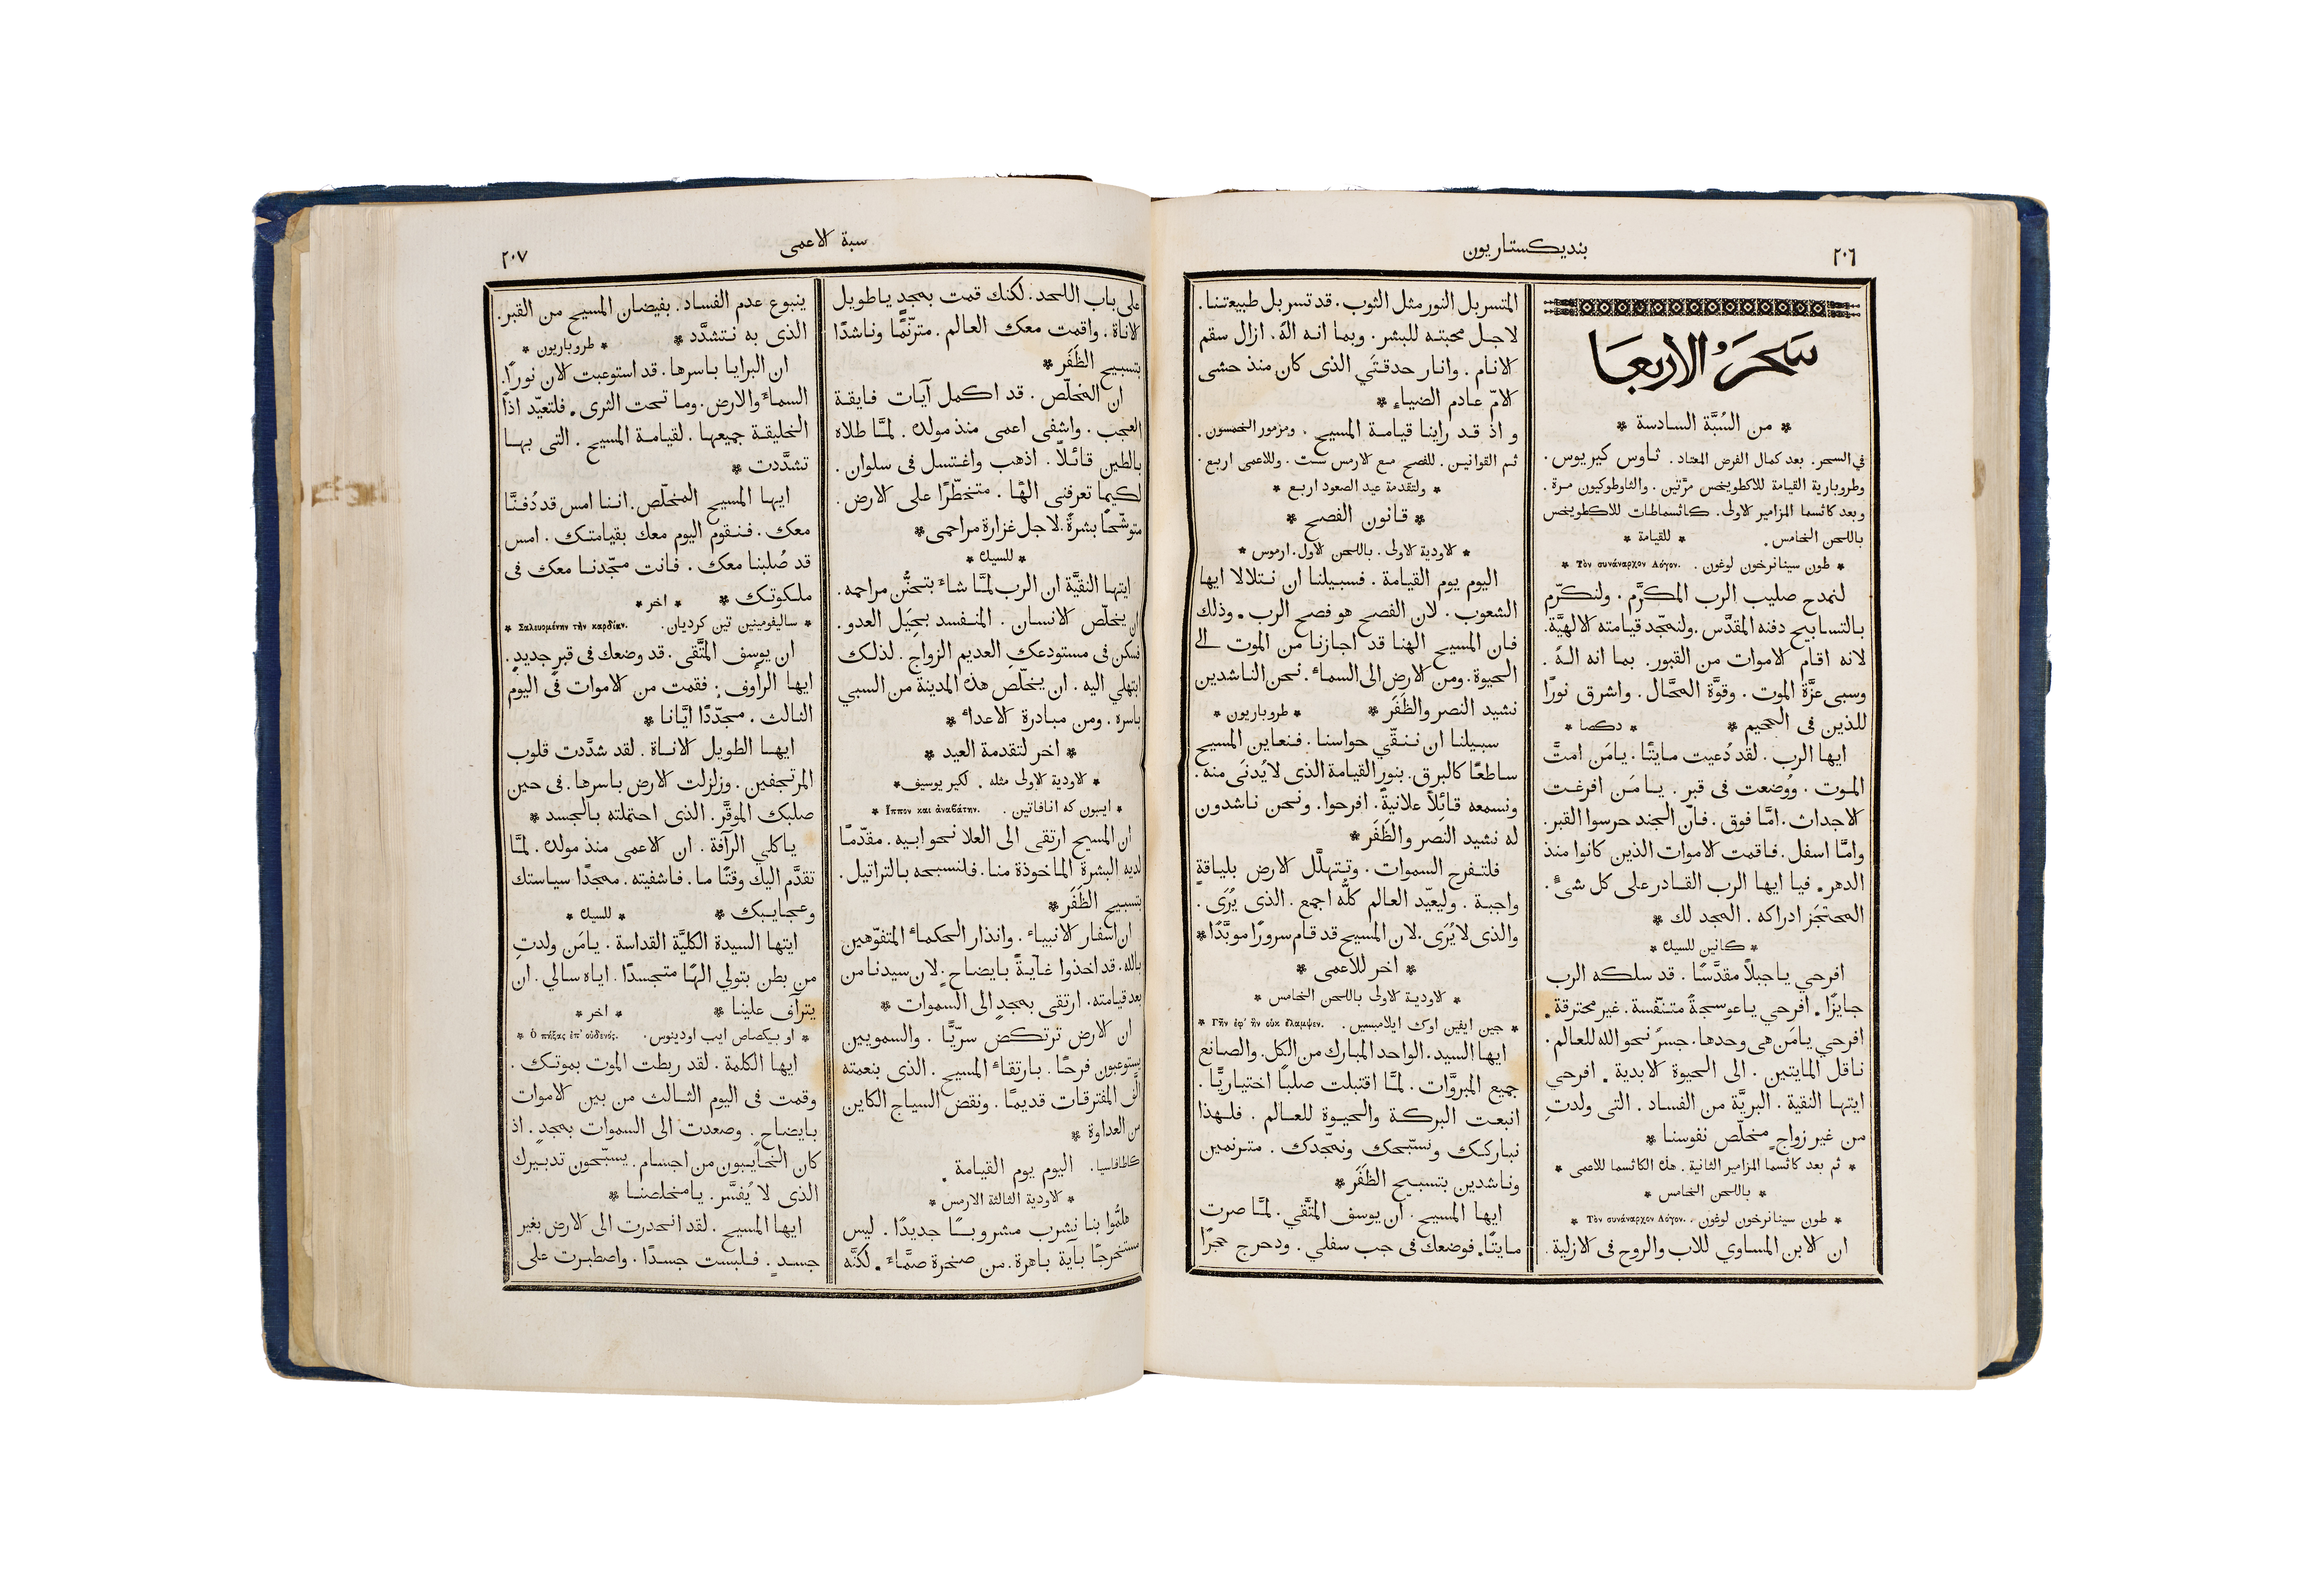 ٢٠٦
بنديكستاريون
سَحَرُ الاربعا
* من السُبَّة السادسة *
في السحر. بعد كمال الفرض المعتاد. ثاوس كيريوس.
وطروبارية القيامة للاكطويخس مرَّتين. والثاوطوكيون مرة.
وبعد كاثسما المزامير الاولى. كاثسماطات للاكطويخس
باللحن الخامس. * للقيامة *
* طون سينانرخون لوغون. Τὸν συνάναρχον Λόγον. *
لنمدح صليب الرب المكرَّم. ولنكرّم
بالتسابيح دفنه المقدَّس. ولنمجّد قيامته الالهيَّة.
لانه اقام الاموات من القبور. بما انه الهٌ.
وسبى عزَّة الموت. وقوَّة المحَّال. واشرق نورًا
للذين فى الجحيم * * دكصا *
ايها الرب. لقد دُعيت مايتًا. يامَن امتَّ
الموت. ووُضعت فى قبر. يامَن افرغت
الاجداث. امَّا فوق. فانَّ الجند حرسوا القبر.
وامَّا اسفل. فاقمت الاموات الذين كانوا منذ
الدهر. فيا ايها الرب القادر على كل شىءٍ.
المحتجَز ادراكه. المجد لك *
* كانين للسيدة *
افرحي ياجبلاً مقدَّسًا. قد سلكه الرب
جايزًا. افرحي ياعوسجةً متنفّسة. غير محترقة.
افرحي يامَن هى وحدها. جسرٌ نحو الله للعالم.
ناقل المايتين. الى الحيوة الابدية. افرحي
ايتها النقية. البريَّة من الفساد. التى ولدتِ
من غير زواجٍ مخلّص نفوسنا *
* ثم بعد كاثسما المزامير الثانية. هذه الكاثسما للاعمى *
* باللحن الخامس *
* طون سينانرخون لوغون. Τὸν συνάναρχον Λόγον. *
ان الابن المساوي للاب والروح فى الازلية.
المتسربل النور مثل الثوب. قد تسربل طبيعتنا.
لاجل محبته للبشر. وبما انه الهٌ. ازال سقم
الانام. وانار حدقتَي الذى كان منذ حشى
الامّ عادم الضياءِ *
و اذ قد راينا قيامة المسيح. ومزمور الخمسون.
ثم القوانين. للفصح مع الارمس ست. وللاعمى اربع.
* ولتقدمة عيد الصعود اربع *
* قانون الفصح *
* الاودية الاولى. باللحن الاول. ارموس *
اليوم يوم القيامة. فسبيلنا ان نتلالا ايها
الشعوب. لان الفصح هو فصح الرب. وذلك
فان المسيح الهنا قد اجازنا من الموت الى
الحيوة. ومن الارض الى السماء. نحن الناشدين
نشيد النصر والظَفَر * * طروباريون *
سبيلنا ان ننقّي حواسنا. فنعاين المسيح
ساطعًا كالبرق. بنور القيامة الذى لا يُدنَى منه.
ونسمعه قائلاً علانيةً. افرحوا. ونحن ناشدون
له نشيد النصر والظَفَر *
فلتفرح السموات. وتتهلَّل الارض بلياقةٍ
واجبة. وليعيّد العالم كلُّه اجمع. الذى يُرَى.
والذى لا يُرَى. لان المسيح قد قام سرورًا موبَّدًا *
* اخر للاعمى *
* الاودية الاولى باللحن الخامس *
* جين ايفين اوك ايلامبسين. Γῆν ἐφ' ἣν οὐκ ἔλαμψεν. *
ايها السيد. الواحد المبارك من الكل. والصانع
جميع المبروَّات. لمَّا اقتبلت صلبًا اختياريًّا.
انبعت البركة والحيوة للعالم. فلهذا
نباركك ونسبّحك ونمجّدك. مترنمين
وناشدين بتسبيح الظَفَر *
ايها المسيح. ان يوسف المتَّقي. لمَّا صرت
مايتًا. فوضعك فى جب سفلي. ودحرج حجرًا
سبة الاعمى
٢٠٧
على باب اللحد. لكنك قمت بمجدٍ ياطويل
الاناة. واقمت معك العالم. مترنّمًا وناشدًا
بتسبيح الظَفَر *
ان المخلّص. قد اكمل آيات فايقة
العجب. واشفى اعمى منذ مولده. لمَّا طلاه
بالطين قائلاً. اذهب واغتسل فى سلوان.
لكيما تعرفنى الهًا. متخطّرًا على الارض.
متوشّحًا بشرةً. لاجل غزارة مراحمى *
* للسيدة *
ايتها النقيَّة ان الرب لمَّا شاءَ بتحنُّن مراحمه.
ان يخلّص الانسان. المنفسد بحِيَل العدو.
فسكن فى مستودعكِ العديم الزواج. لذلك
ابتهلي اليه. ان يخلّص هذه المدينة من السبي
باسره. ومن مبادرة الاعداء *
* اخر لتقدمة العيد *
* الاودية الاولى مثله. لكير يوسيف *
* ايبون كه انافاتين. Ἵππον καὶ ἀναβάτην. *
ان المسيح ارتقى الى العلا نحو ابيه. مقدّمًا
لديه البشرة الماخوذة منا. فلنسبحه بالتراتيل.
بتسبيح الظَفَر *
ان اسفار الانبياء. وانذار الحكماء المتفوّهين
بالله. قد اخذوا غايةً بايضاحٍ. لان سيدنا من
بعد قيامته. ارتقى بمجدٍ الى السموات *
ان الارض ترتكض سرّيًّا. والسمويين
يستوعبون فرحًا. بارتقاء المسيح. الذى بنعمته
الَّف المفترقات قديمًا. ونقض السياج الكاين
من العداوة *
كاطافاسيا. اليوم يوم القيامة.
* الاودية الثالثة الارمس *
هلمُّوا بنا نشرب مشروبًا جديدًا. ليس
مستخرجًا بآية باهرة. من صخرة صمَّاءَ. لكنَّه
ينبوع عدم الفساد. بفيضان المسيح من القبر.
الذى به نتشدَّد * * طروباريون *
ان البرايا باسرها. قد استوعبت الان نورًا.
السماءَ والارض. وما تحت الثرى. فلتعيّد اذًا
الخليقة جميعها. لقيامة المسيح. التى بها
تشدَّدت *
ايها المسيح المخلّص. اننا امس قد دُفنَّا
معك. فنقوم اليوم معك بقيامتك. امس
قد صُلبنا معك. فانت مجّدنا معك فى
ملكوتك * * اخر *
* ساليفومينين تين كرديان. Σαλευομένην τὴν καρδίαν. *
ان يوسف المتَّقى. قد وضعك فى قبرٍ جديدٍ.
ايها الرأوف. فقمت من الاموات فى اليوم
الثالث. مجدّدًا ايَّانا *
ايها الطويل الاناة. لقد شدَّدت قلوب
المرتجفين. وزلزلت الارض باسرها. فى حين
صلبك الموقَّر. الذى احتملته بالجسد *
ياكلي الرأفة. ان الاعمى منذ مولده. لمَّا
تقدَّم اليك وقتًا ما. فاشفيته. ممجدًا سياستك
وعجايبك * * للسيدة *
ايتها السيدة الكليَّة القداسة. يامَن ولدتِ
من بطن بتولي الهًا متجسدًا. اياه سالي. ان
يترآف علينا * * اخر *
* او بيكصاص ايب اودينوس. Ὁ πήξας ἐπ' οὐδενός. *
ايها الكلمة. لقد ربطت الموت بموتك.
وقمت فى اليوم الثالث من بين الاموات
بايضاحٍ. وصعدت الى السموات بمجدٍ. اذ
كان الخايبون من اجسام. يسبّحون تدبيرك
الذى لا يُفسَّر. يامخلصنا *
ايها المسيح. لقد انحدرت الى الارض بغير
جسدٍ. فلبست جسدًا. واصطبرت على